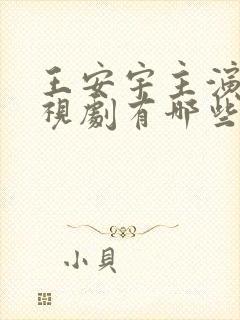 王安宇主演
視劇有哪些
小貝